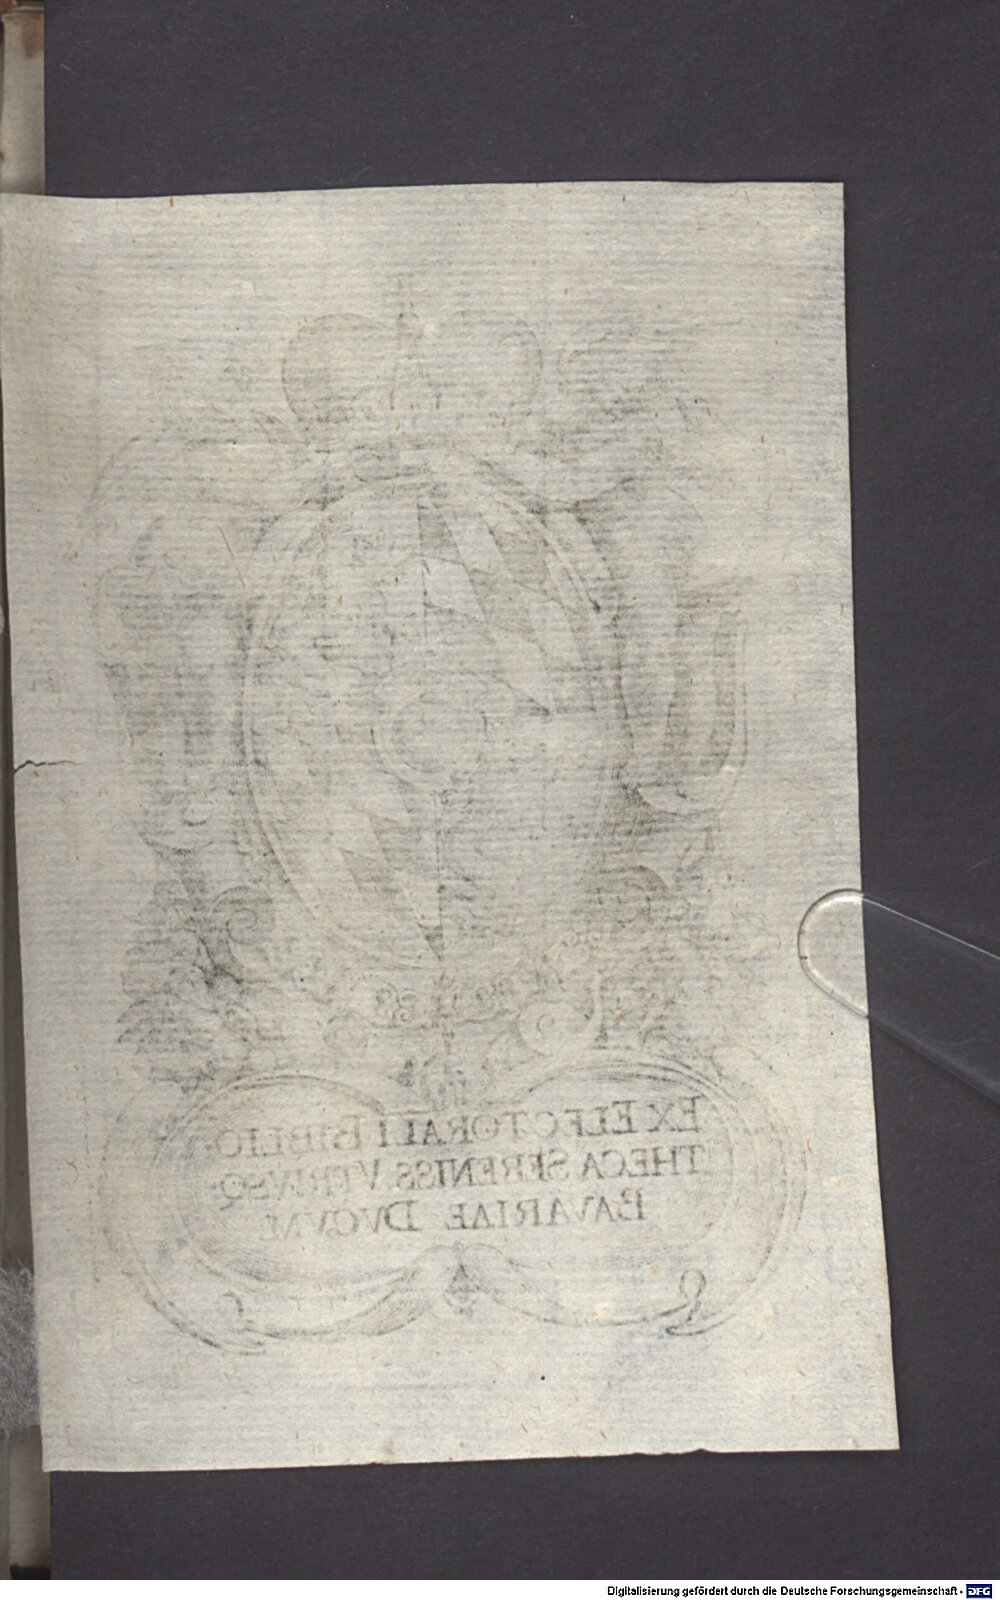 EX ELECTORALI BIBLIO-
THECA SERENISS. VTRIVSQ:
BAVARIAE DVCVM.
Digitalisierung gefördert durch die Deutsche Forschungsgemeinschaft - DFG